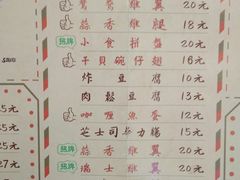 鸳鸯雞翼 20元
蒜香雞腿 18元
招牌 小食拼盤 20元
干貝碗仔翅 16元
炸豆腐 10元
肉鬆豆腐 13元
咖喱魚蛋 12元
芝士司多力腸 15元
招牌 蒜香雞翼 20元
招牌 瑞士雞翼 20元
5元
5元
25元
27元
元